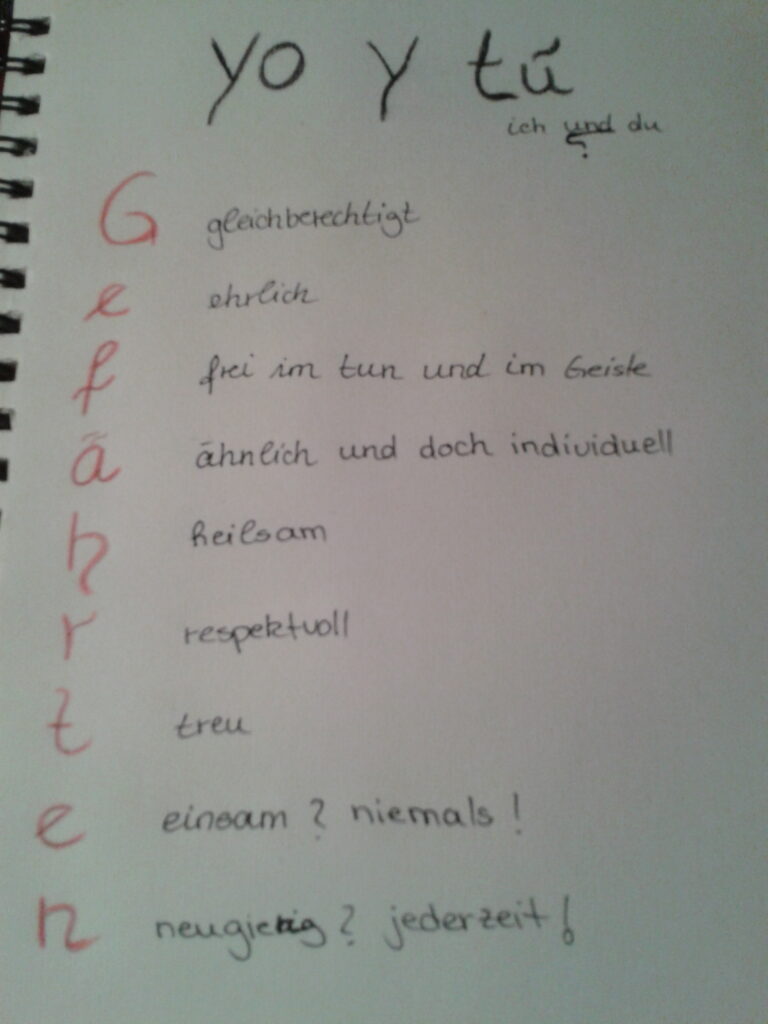 yo y tú
ich und du
?
G gleichberechtigt
e ehrlich
f frei im tun und im Geiste
ä ähnlich und doch individuell
h heilsam
r respektvoll
t treu
e einsam ? niemals !
n neugierig ? jederzeit !